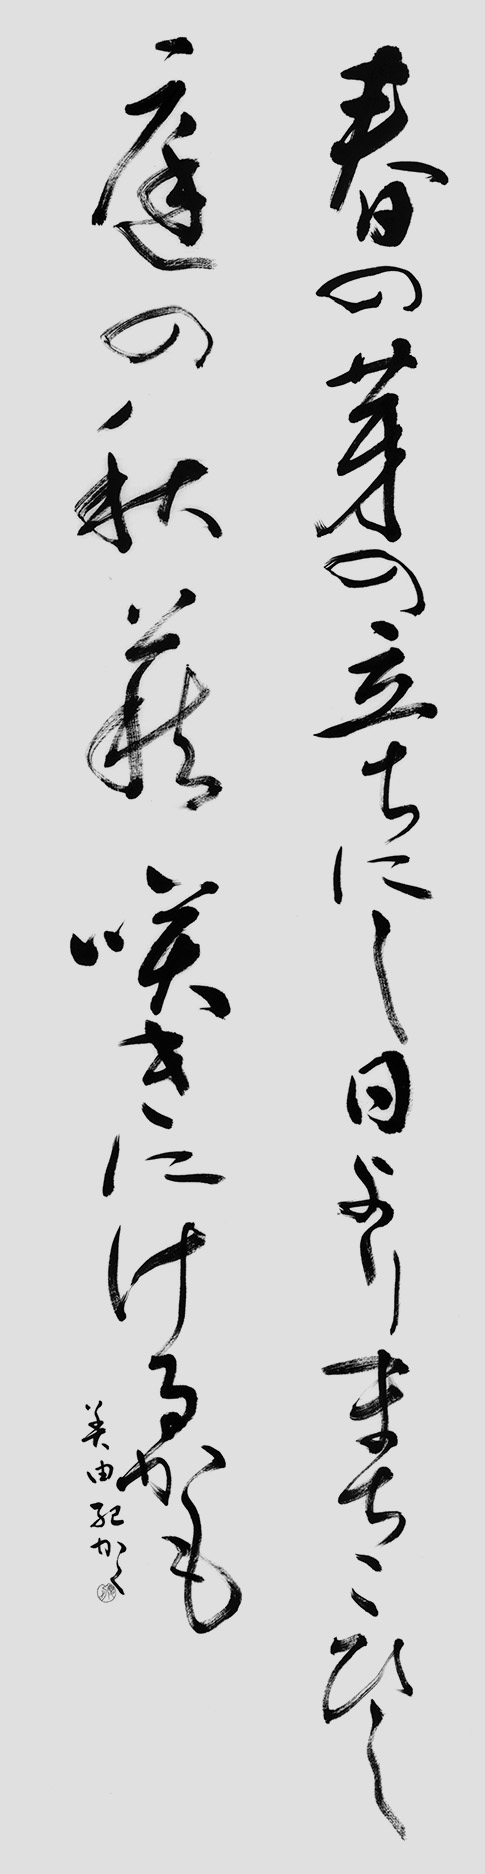 春の芽の立ちにし日よりまちこひし
庭の秋萩咲きにけるかも
美由紀かく